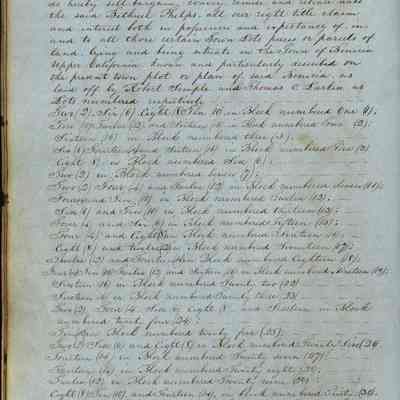 do hereby sell bargain, convey, remise and release unto
the said Bethuel Phelps, all our right title claim
and interest both in possession and expectance of, in
and to all those certain Town Lots pieces or parcels of
Land lying and being situate in the Town of Benicia
Upper California known and particularly described on
the present town plot or plan of said Benicia, as
laid off by Robert Semple and Thomas O. Larkin as
Lots numbered respectively
Two (2), Six (6) Eight (8) Ten (10) in Block numbered One (1).
Ten (10) Twelve (12) and in Block numbered Two (2).
Sixteen (16) in Block numbered three (3).
Six (6) and Sixteen (16) in Block numbered Five (5)
Eight (8) in Block numbered Six (6).
Two (2) in Block numbered Seven (7).
Two (2) Four (4) and Twelve (12) in Block numbered
Four and Ten (10) in Block numbered Twelve (12).
Six (6) and Ten (10) in Block numbered Thirteen (13).
Four (4) and Six (6) in Block numbered Fifteen (15).
Four (4) and Eight (8) in Block numbered
Eight (8) and Twelve (12) in Block numbered Seventeen (17).
Twelve (12) and Fourteen in Block numbered Eighteen (18).
Ten (10) Twelve (12) and Sixteen (16) in Block numbered Nineteen (19).
Sixteen (16) in Block numbered Twenty two (22)
Sixteen (16) in Block numbered Twenty three (23)
Two (2) Four (4) Six (6) Eight (8) and Sixteen in Block
numbered twenty four (24).
in Block numbered twenty five (25).
Two (2) Six (6) and Eight (8) in Block numbered Twenty Six (26)
Fourteen (14) in Block numbered Twenty Seven (27).
Fourteen (14) in Block numbered Twenty eight (28).
Twelve (12) in Block numbered Twenty nine (29).
Eight (8) Ten (10) and Fourteen (14) in block numbered Thirty (30).